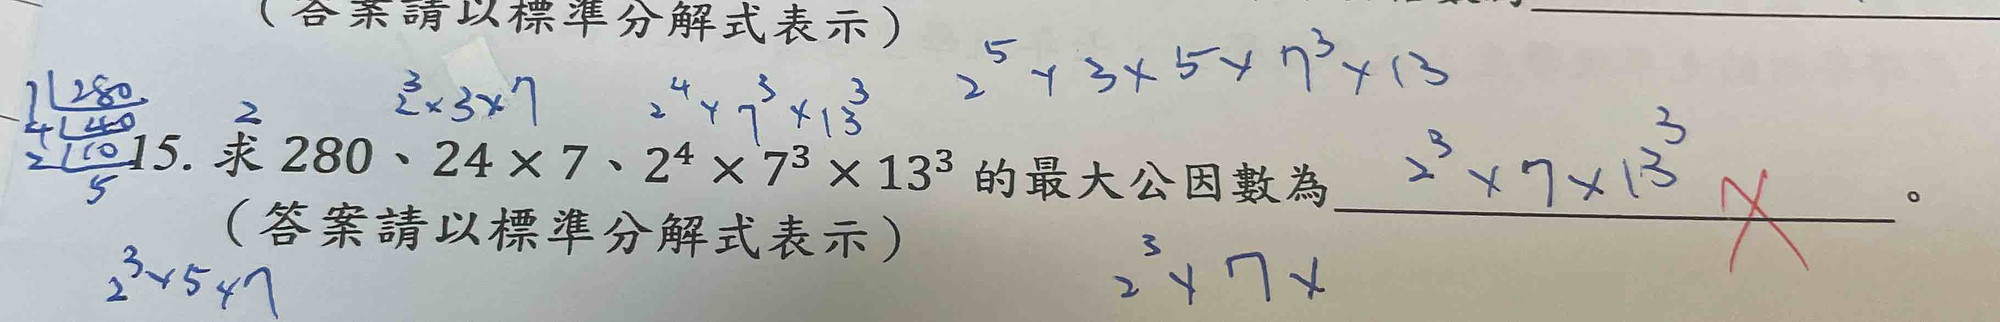 （答案請以標準分解式表示）
2⁵ × 3 × 5 × 7³ × 13
7 280
4 40
2 10
5
2
2³ × 3 × 7
2⁴ × 7³ × 13³
15. 求 280、24 × 7、2⁴ × 7³ × 13³ 的最大公因數為 2³ × 7 × 13³ 。
（答案請以標準分解式表示）
2³ × 5 × 7
2³ × 7 ×